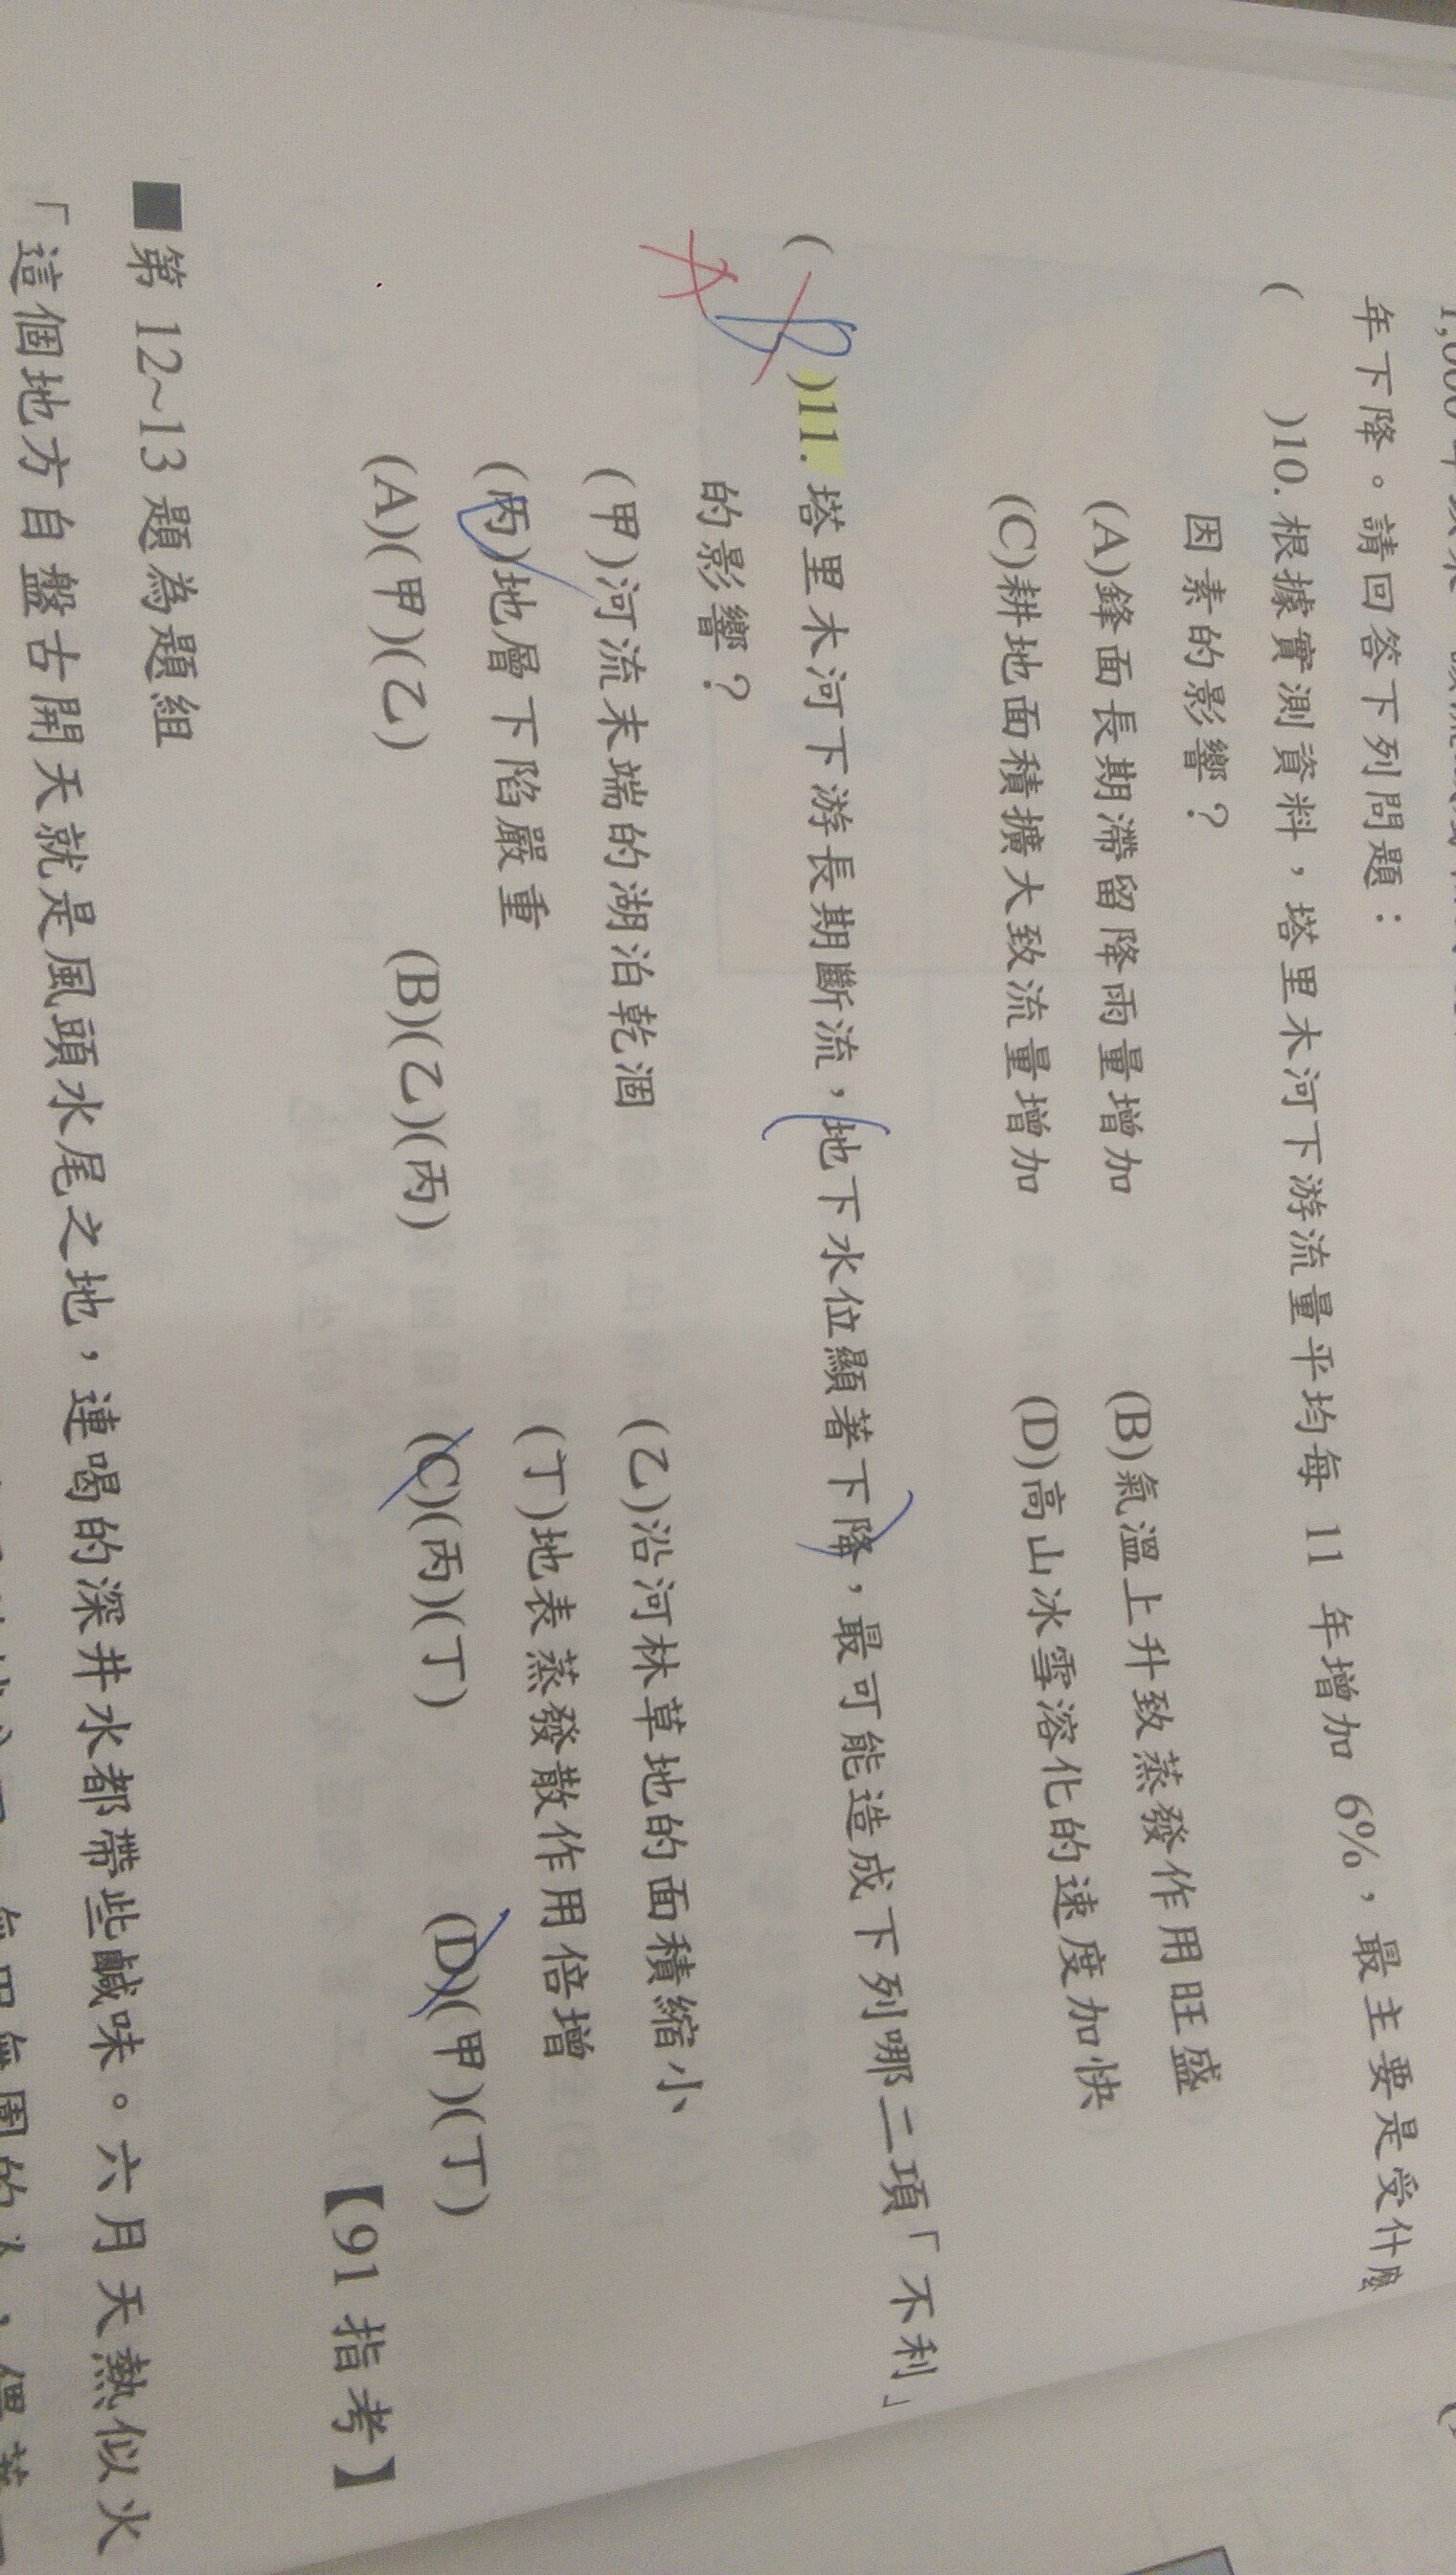 年下降。請回答下列問題：
( )10.根據實測資料，塔里木河下游流量平均每 11 年增加 6%，最主要是受什麼
因素的影響？
(A)鋒面長期滯留降雨量增加 (B)氣溫上升致蒸發作用旺盛
(C)耕地面積擴大致流量增加 (D)高山冰雪溶化的速度加快
( )11.塔里木河下游長期斷流，地下水位顯著下降，最可能造成下列哪二項「不利」
的影響？
(甲)河流末端的湖泊乾涸 (乙)沿河林草地的面積縮小
(丙)地層下陷嚴重 (丁)地表蒸發散作用倍增
(A)(甲)(乙) (B)(乙)(丙) (C)(丙)(丁) (D)(甲)(丁)
【91 指考】
■第 12~13 題為題組
「這個地方自盤古開天就是風頭水尾之地，連喝的深井水都帶些鹹味。六月天熱似火